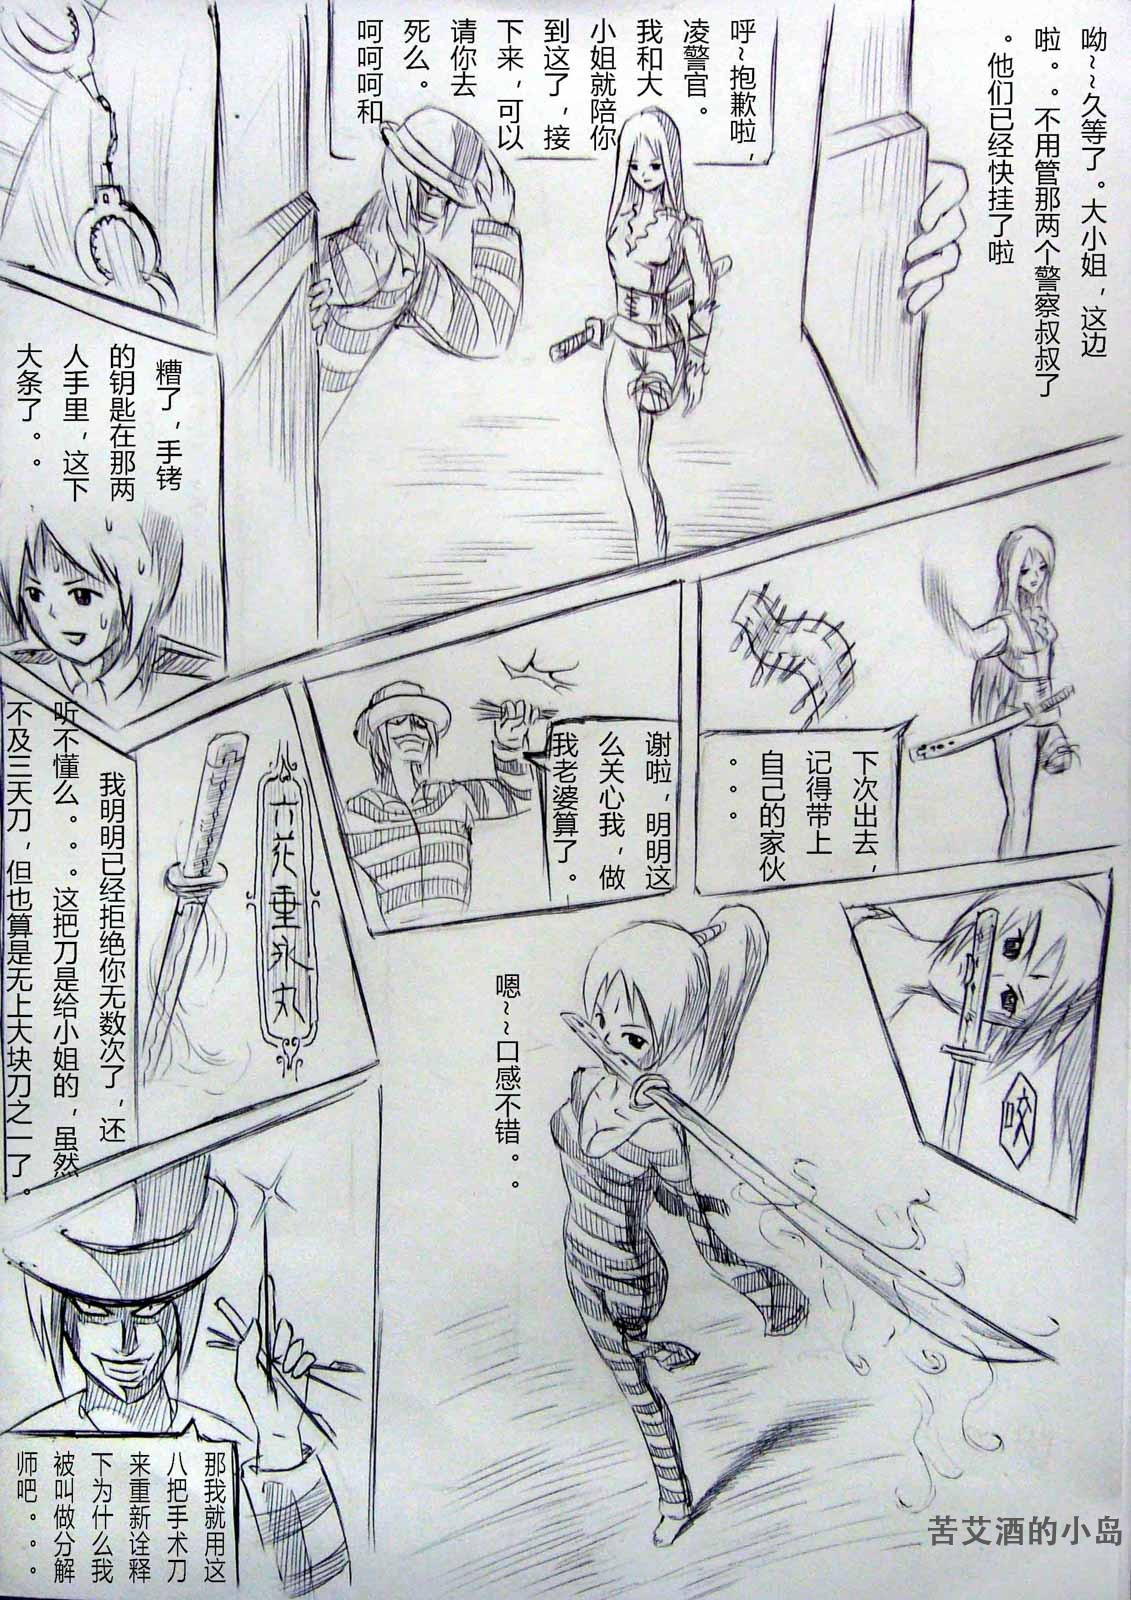 呦~~久等了。大小姐，这边
啦。。不用管那两个警察叔叔了
。他们已经快挂了啦
呼~抱歉啦，
凌警官。
我和大
小姐就陪你
到这了，接
下来，可以
请你去
死么。
呵呵呵和
糟了，手铐
的钥匙在那两
人手里，这下
大条了。。
下次出去，
记得带上
自己的家伙
。。。
谢啦，明明这
么关心我，做
我老婆算了。
六花垂氷丸
我明明已经拒绝你无数次了，还
听不懂么。。。这把刀是给小姐的，虽然
不及三天刀，但也算是无上大块刀之一了。
咬
嗯~~口感不错。
那我就用这
八把手术刀
来重新诠释
下为什么我
被叫做分解
师吧。。。
苦艾酒的小岛